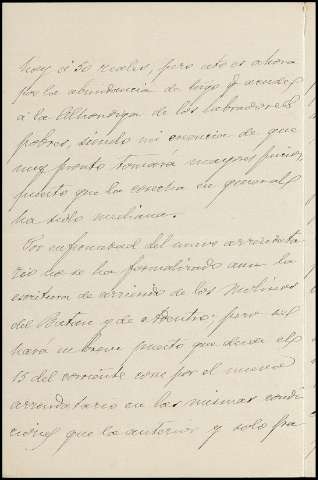 hoy á 50 reales, pero esto es ahora
por la abundancia de trigo q acude
á la Alhondiga de los labradores
pobres, siendo mi creencia de que
muy pronto tomará mayores precios,
puesto que la cosecha en general
ha sido mediana.
Por enfermedad del nuevo arrendata-
rio no se ha formalizado aun la
escritura de arriendo de los Molinos
del Batan y de Adentro; pero se
hará en breve puesto que desde el
15 del corriente corre por el nuevo
arrendatario en las mismas condi-
ciones que la anterior y solo fra